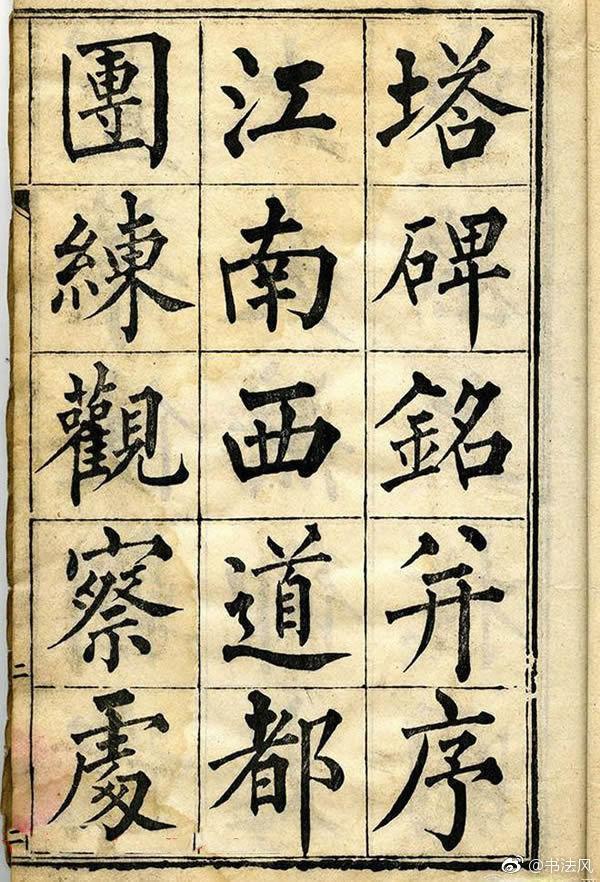 塔碑銘并序
江南西道都
團練觀察處
二
二
@书法风